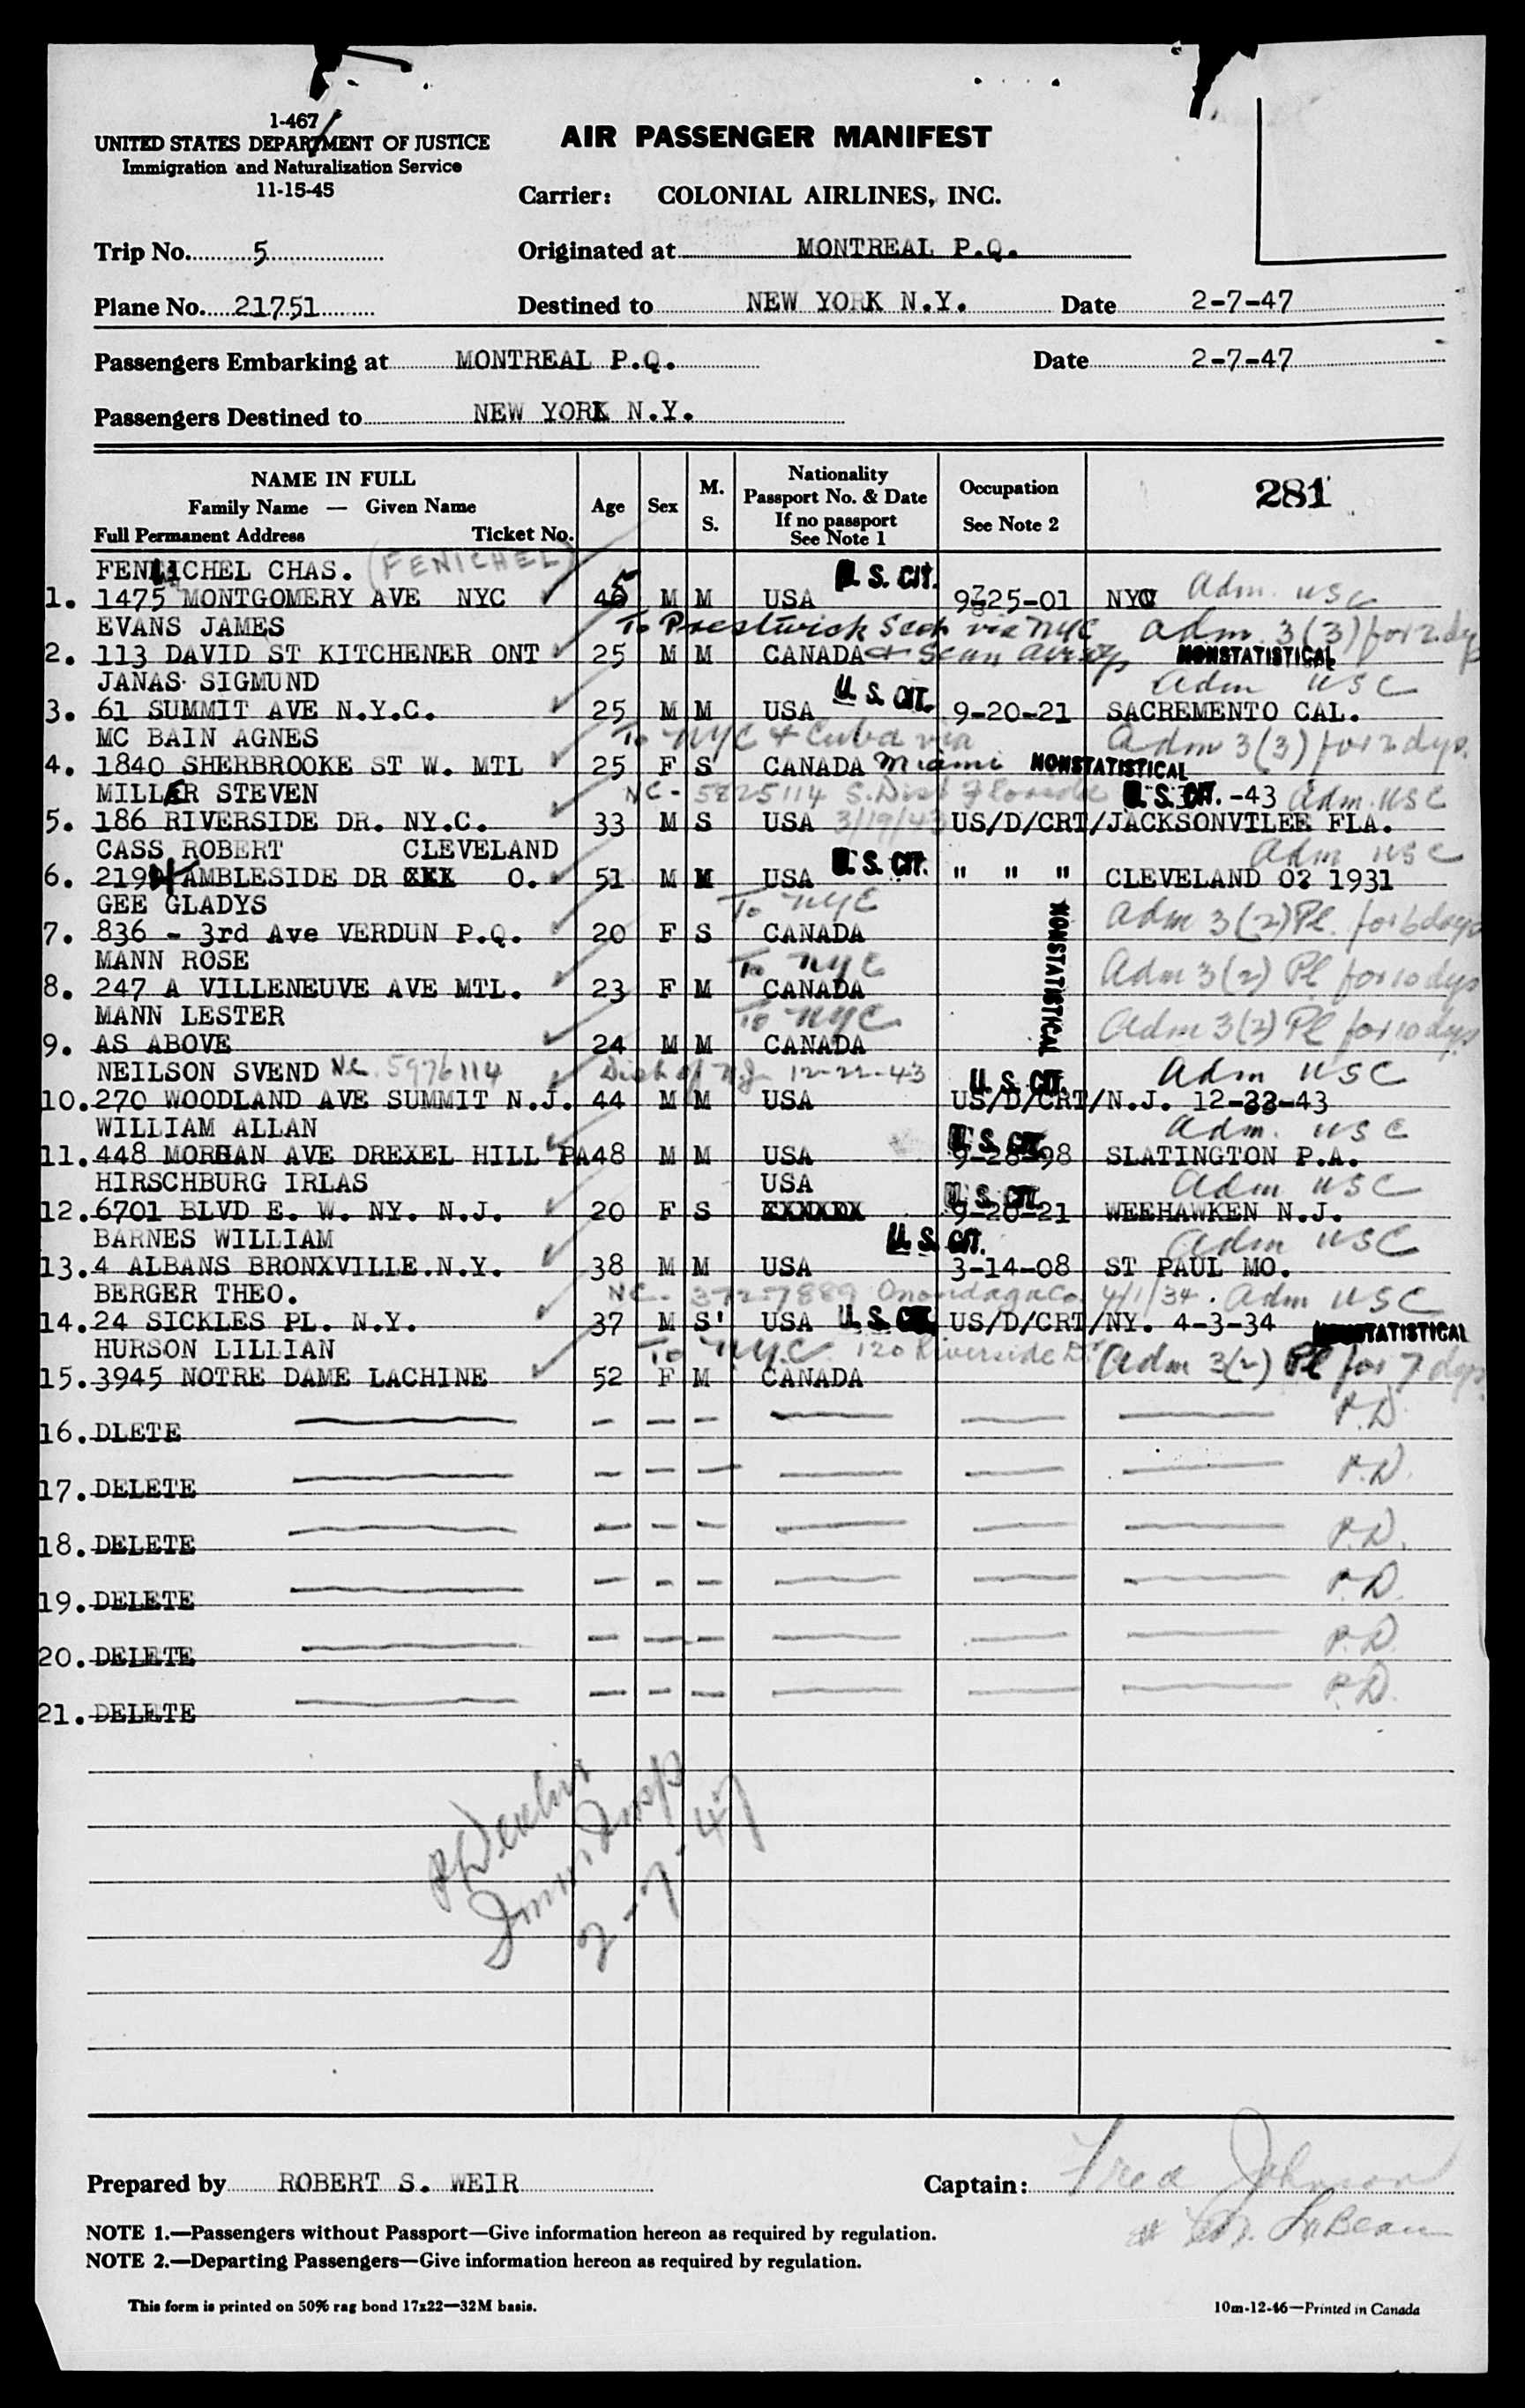 1-467
UNITED STATES DEPARTMENT OF JUSTICE
Immigration and Naturalization Service
11-15-45
AIR PASSENGER MANIFEST
Carrier: COLONIAL AIRLINES, INC.
Trip No. 5 Originated at MONTREAL P.Q.
Plane No. 21751 Destined to NEW YORK N.Y. Date 2-7-47
Passengers Embarking at MONTREAL P.Q. Date 2-7-47
Passengers Destined to NEW YORK N.Y.
NAME IN FULL
Family Name — Given Name
Full Permanent Address Ticket No.
Age Sex M. S.
Nationality
Passport No. & Date
If no passport
See Note 1
Occupation
See Note 2
281
CHAS. (FENICHEL) U.S. CIT. Adm. USC
1. 1475 MONTGOMERY AVE NYC 45 M M USA 25-01 NYC
EVANS JAMES To Prestwick Scot via NYC adm. 3(3) for 2 dys
2. 113 DAVID ST KITCHENER ONT 25 M M CANADA NONSTATISTICAL
JANAS SIGMUND U.S. CIT. Adm USC
3. 61 SUMMIT AVE N.Y.C. 25 M M USA 9-20-21 SACREMENTO CAL.
MC BAIN AGNES To NYC + Cuba via Adm 3(3) for 2 dys.
4. 1840 SHERBROOKE ST W. MTL 25 F S CANADA Miami NONSTATISTICAL
MILLER STEVEN NC- 5825114 S. Dist Florida U.S. CIT. -43 Adm. USC
5. 186 RIVERSIDE DR. NY.C. 33 M S USA 3/19/43 US/D/CRT/JACKSONVILEE FLA.
CASS ROBERT CLEVELAND U.S. CIT. Adm USC
6. AMBLESIDE DR XXX O. 51 M M USA " " " CLEVELAND O? 1931
GEE GLADYS To NYC Adm 3(2) Pl. for 6 days
7. 836 - 3rd Ave VERDUN P.Q. 20 F S CANADA NONSTATISTICAL
MANN ROSE To NYC Adm 3(2) Pl for 10 dys
8. 247 A VILLENEUVE AVE MTL. 23 F M CANADA
MANN LESTER To NYC Adm 3(2) Pl for 10 dys
9. AS ABOVE 24 M M CANADA
NEILSON SVEND NC 5976114 Dist of NJ 12-22-43 U.S. CIT. Adm USC
10. 270 WOODLAND AVE SUMMIT N.J. 44 M M USA US/D/CRT/N.J. 12-22-43
WILLIAM ALLAN U.S. CIT. Adm. USC
11. 448 MORGAN AVE DREXEL HILL PA 48 M M USA 9-28-98 SLATINGTON P.A.
HIRSCHBURG IRLAS USA U.S. CIT. Adm USC
12. 6701 BLVD E. W. NY. N.J. 20 F S XXXXXX 9-20-21 WEEHAWKEN N.J.
BARNES WILLIAM U.S. CIT. Adm USC
13. 4 ALBANS BRONXVILLE.N.Y. 38 M M USA 3-14-08 ST PAUL MO.
BERGER THEO. NC- 3727889 Onondaga Co. 4/1/34. Adm USC
14. 24 SICKLES PL. N.Y. 37 M S' USA U.S. CIT. US/D/CRT/NY. 4-3-34 NONSTATISTICAL
HURSON LILLIAN To N.Y.C. 120 Riverside Dr Adm 3(2) Pl for 7 days
15. 3945 NOTRE DAME LACHINE 52 F M CANADA
16. DLETE — — — — — — — P.D.
17. DELETE — — — — — — — P.D.
18. DELETE — — — — — — — P.D.
19. DELETE — — — — — — — P.D.
20. DELETE — — — — — — — P.D.
21. DELETE — — — — — — — P.D.
Immi Insp
2-7-47
Prepared by ROBERT S. WEIR Captain: Fred Johnson
LaBeau
NOTE 1.—Passengers without Passport—Give information hereon as required by regulation.
NOTE 2.—Departing Passengers—Give information hereon as required by regulation.
This form is printed on 50% rag bond 17x22—32M basis. 10m-12-46—Printed in Canada